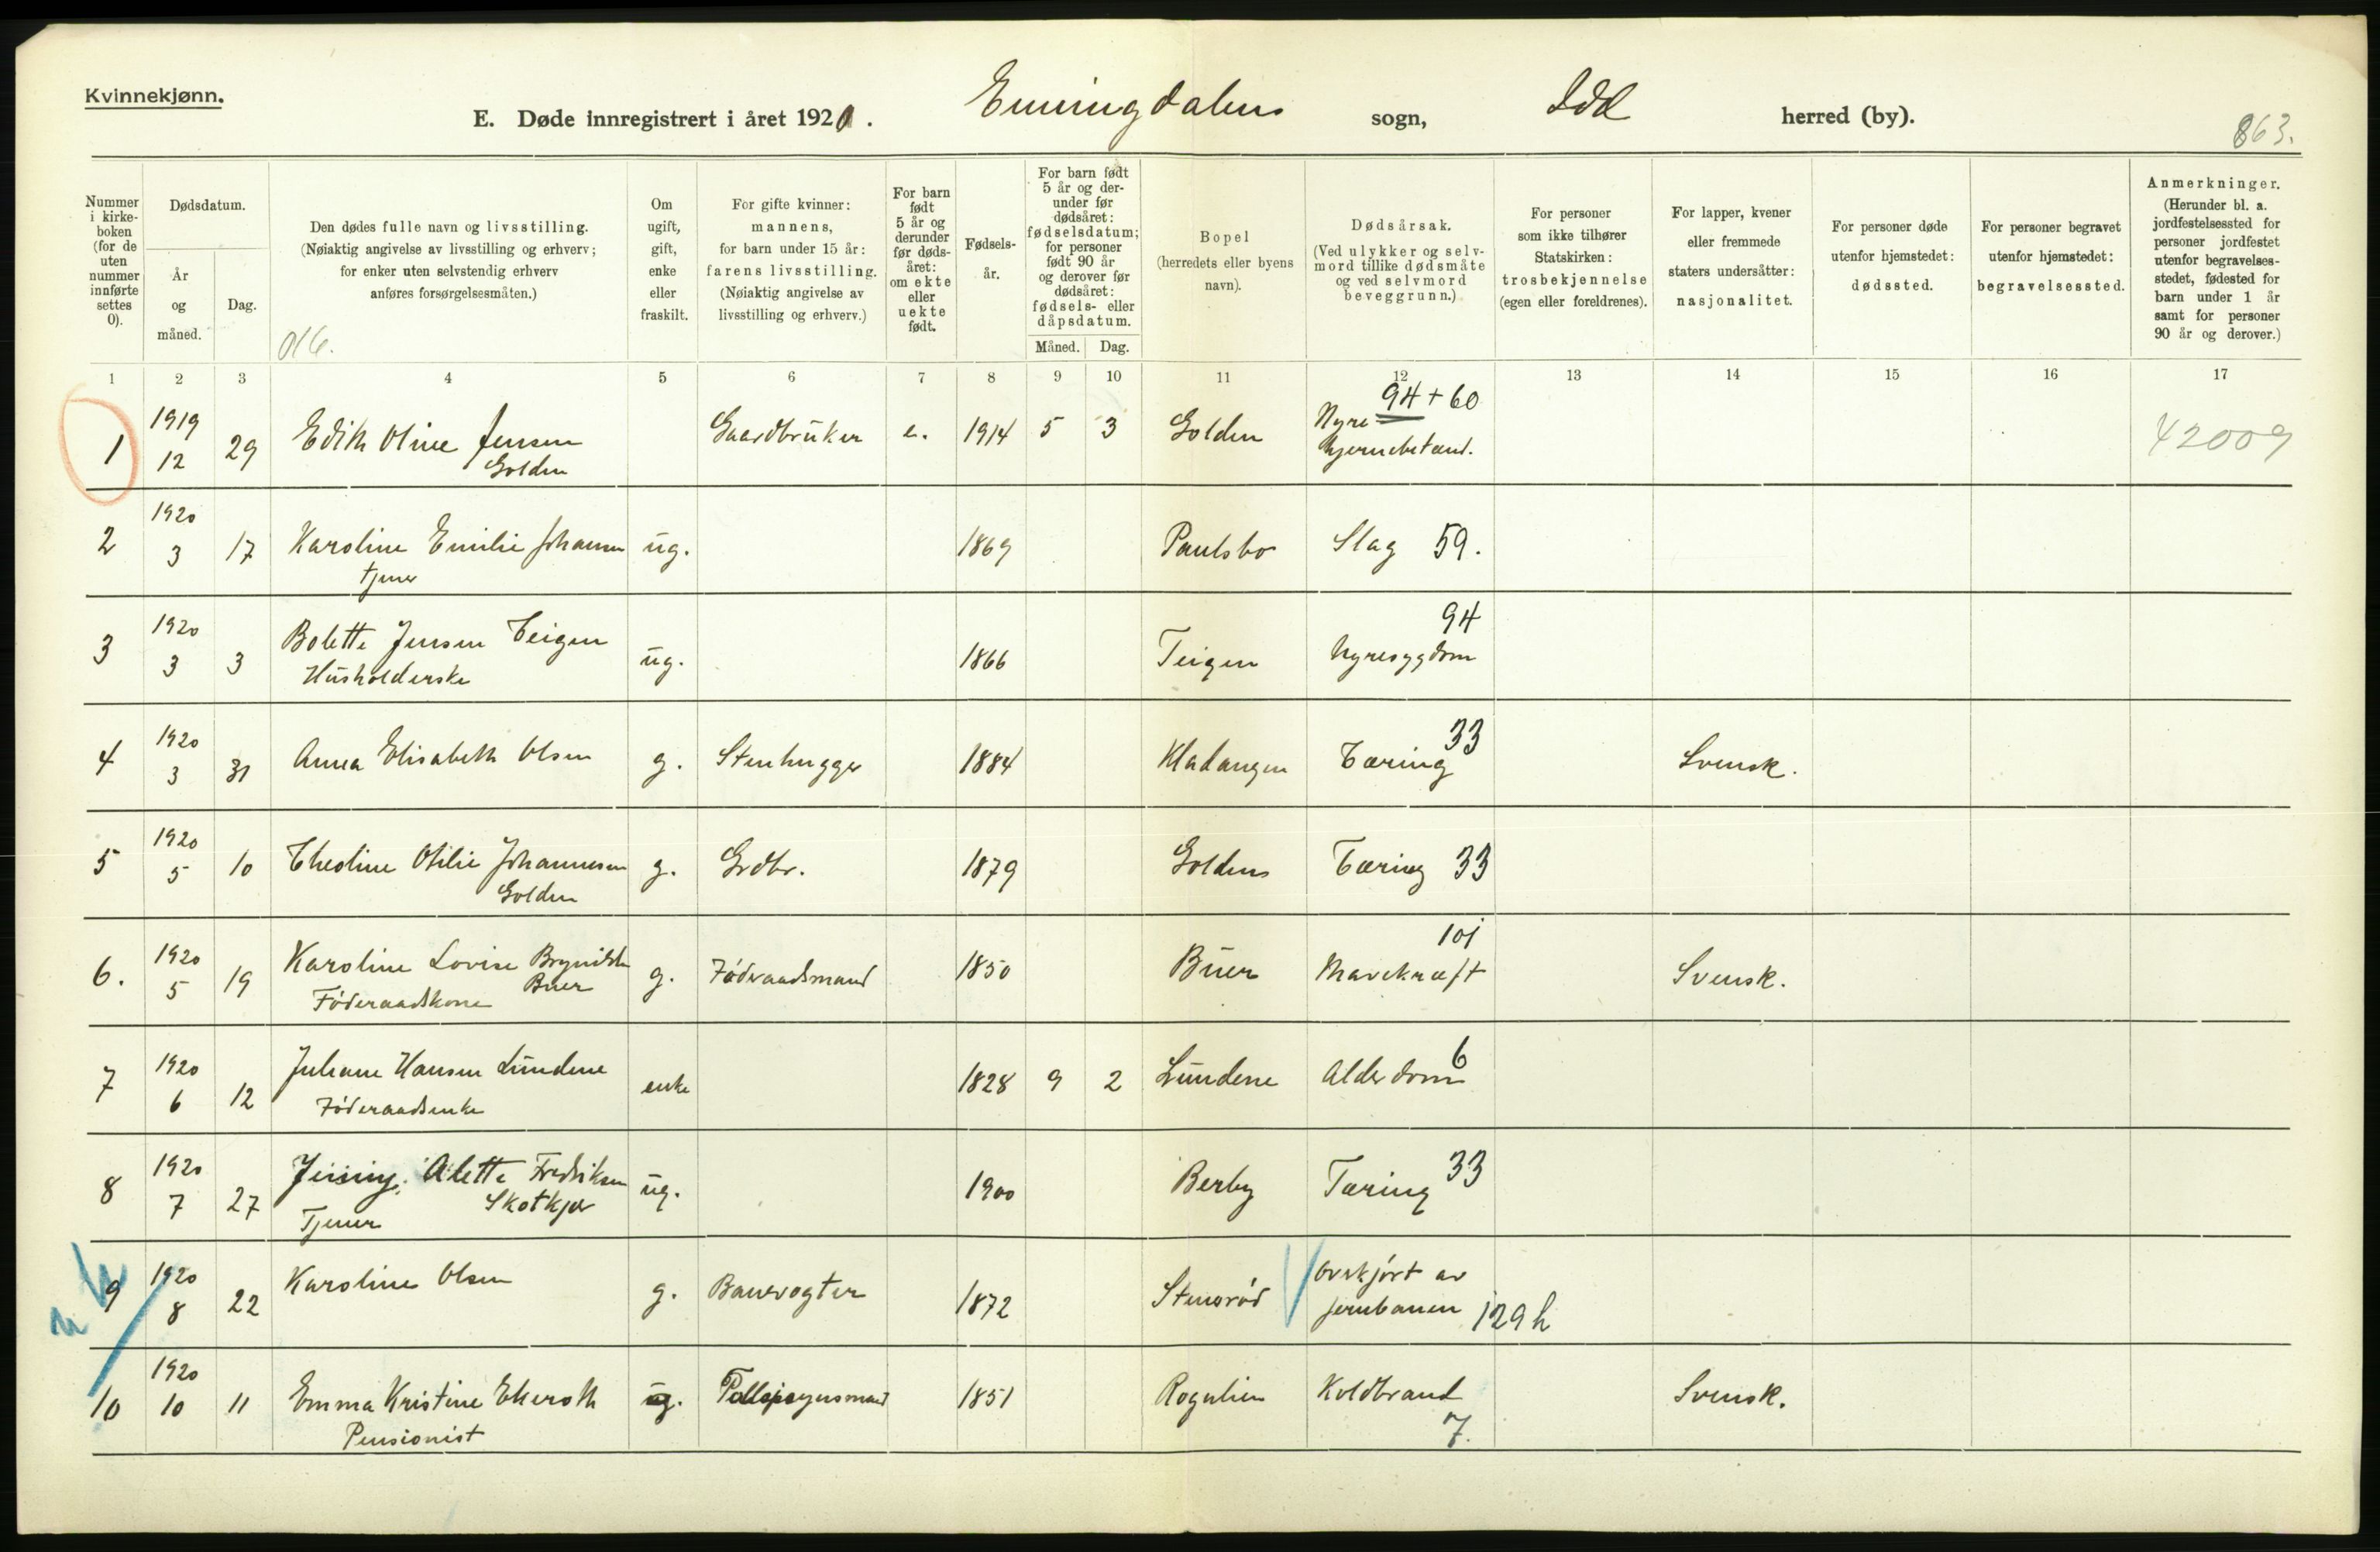 Kvinnekjønn.
E. Døde innregistrert i året 1920. Enningdalens sogn, Idd herred (by).
863.
Nummer i kirke- boken (for de uten nummer innførte settes 0).
Dødsdatum.
År og måned.
Dag.
Den dødes fulle navn og livsstilling.
(Nøiaktig angivelse av livsstilling og erhverv;
for enker uten selvstendig erhverv
anføres forsørgelsesmåten.)
016.
Om ugift, gift, enke eller fraskilt.
For gifte kvinner:
mannens,
for barn under 15 år:
farens livsstilling.
(Nøiaktig angivelse av
livsstilling og erhverv.)
For barn født 5 år og derunder før døds- året: om ekte eller uekte født.
Fødsels- år.
For barn født 5 år og der- under før dødsåret: fødselsdatum; for personer født 90 år og derover før dødsåret: fødsels- eller dåpsdatum.
Måned. Dag.
Bopel
(herredets eller byens
navn).
Dødsårsak.
(Ved ulykker og selv-
mord tillike dødsmåte
og ved selvmord
beveggrunn.)
For personer
som ikke tilhører
Statskirken:
trosbekjennelse
(egen eller foreldrenes).
For lapper, kvener
eller fremmede
staters undersåtter:
nasjonalitet.
For personer døde
utenfor hjemstedet:
dødssted.
For personer begravet
utenfor hjemstedet:
begravelsessted.
Anmerkninger.
(Herunder bl. a.
jordfestelsessted for
personer jordfestet
utenfor begravelses-
stedet, fødested for
barn under 1 år
samt for personer
90 år og derover.)
1 2 3 4 5 6 7 8 9 10 11 12 13 14 15 16 17
1919 94 + 60
1 12 29 Edith Oline Jensen Gaardbruker e. 1914 5 3 Golden Nyre 42009
Golden hjernebetænd.
1920
2 3 17 Karoline Emilie Johansen ug. 1869 Paulsbo Slag 59.
tjener
1920 94
3 3 3 Bolette Jensen Teigen ug. 1866 Teigen Nyresygdom
Husholderske
1920 33
4 3 31 Anna Elisabeth Olsen g. Stenhugger 1884 Kladangen Tæring Svensk.
1920
5 5 10 Theoline Otilie Johannesen g. Grdbr. 1879 Goldens Tæring 33
Golden
1920 101
6. 5 19 Karoline Lovise Brynilds g. Födraadsmand 1850 Buer Mavekræft Svensk.
Föderaadskone Buer
1920 6
7 6 12 Juliane Hansen Lundene enke 1828 9 2 Lundene Alderdom
Föderaadsenke
1920 33
8 7 27 Jenny Alette Fredriksen ug. 1900 Berby Tæring
Tjener Skotkjær
1920
9 8 22 Karoline Olsen g. Banevogter 1872 Stensröd Overkjört av
jernbanen 129h
1920
10 10 11 Emma Kristine Ekeroth ug. 1851 Koldbrand Svensk.
Pensionist 7.